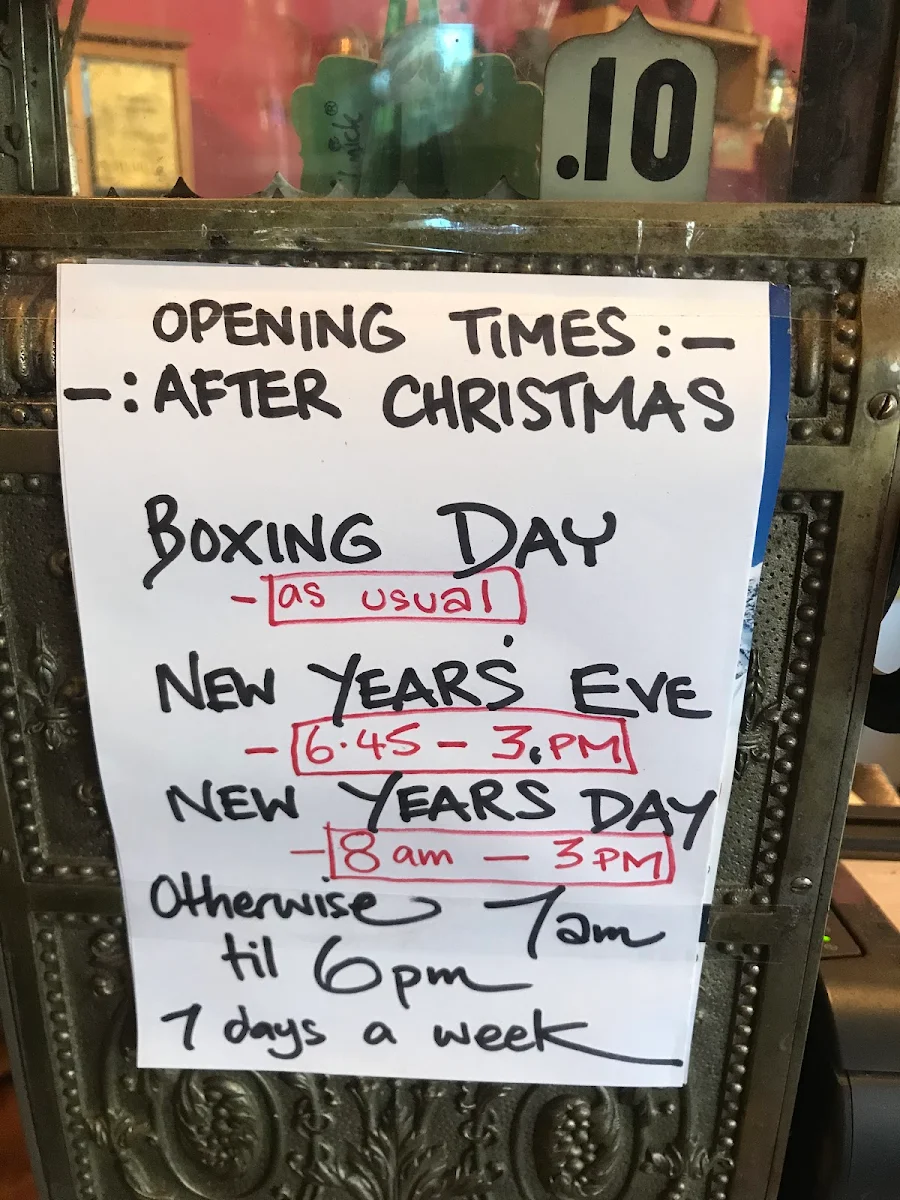 .10
OPENING TIMES :-
-: AFTER CHRISTMAS
BOXING DAY
- as usual
NEW YEARS' EVE
- 6.45 - 3.PM
NEW YEARS DAY
- 8am - 3PM
Otherwise 7am
til 6pm
7 days a week